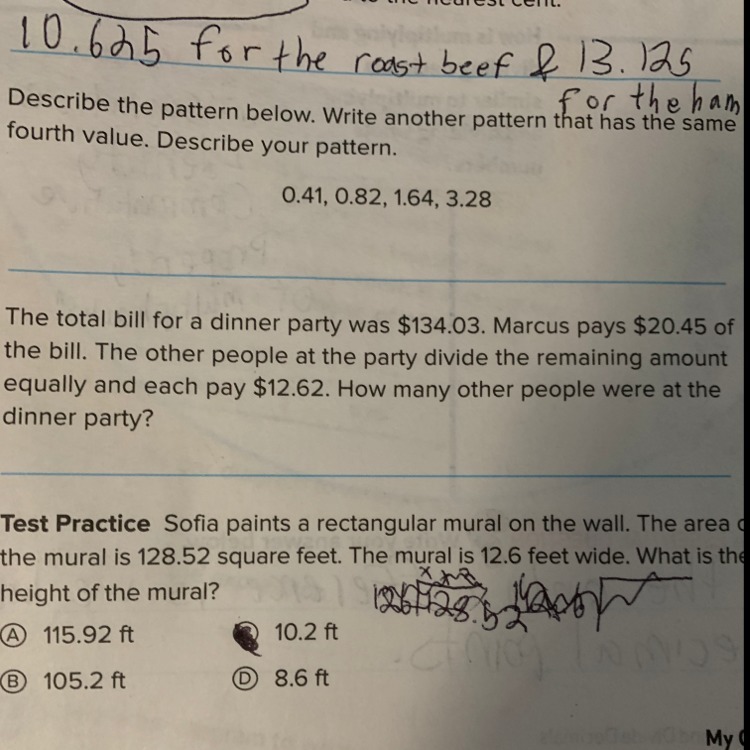 the nearest cent.
10.625 for the roast beef & 13.125
for the ham
Describe the pattern below. Write another pattern that has the same
fourth value. Describe your pattern.
0.41, 0.82, 1.64, 3.28
The total bill for a dinner party was $134.03. Marcus pays $20.45 of
the bill. The other people at the party divide the remaining amount
equally and each pay $12.62. How many other people were at the
dinner party?
Test Practice Sofia paints a rectangular mural on the wall. The area
the mural is 128.52 square feet. The mural is 12.6 feet wide. What is the
height of the mural?
A 115.92 ft
10.2 ft
B 105.2 ft
D 8.6 ft
My